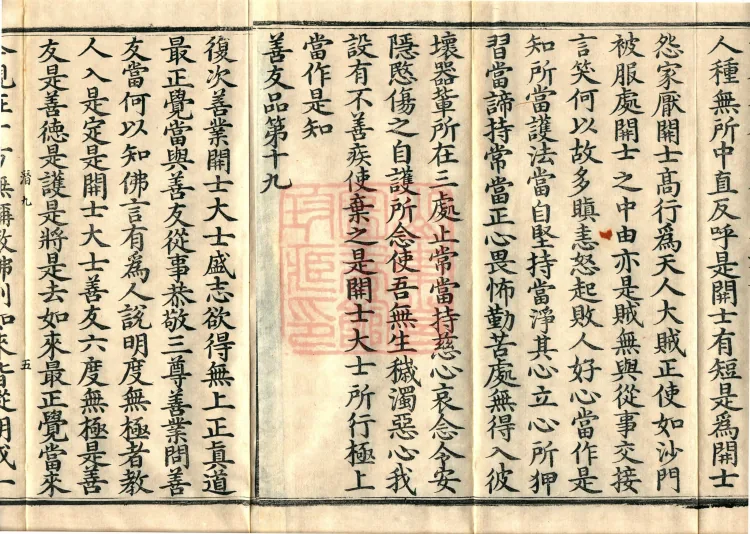 人種無所中直反呼是開士有短是爲開士
怨家厭開士高行爲天人大賊正使如沙門
被服處開士之中由亦是賊無與從事交接
言笑何以故多瞋恚怒起敗人好心當作是
知所當護法當自堅持當淨其心立心所狎
習當諦持常當正心畏怖勤苦處無得入彼
壞器軰所在三處止常當持慈心哀念令安
隱愍傷之自護所念使吾無生穢濁惡心我
設有不善疾使棄之是開士大士所行極上
當作是知
善友品第十九
復次善業開士大士盛志欲得無上正眞道
最正覺當與善友從事恭敬三尊善業問善
友當何以知佛言有爲人說明度無極者教
人入是定是開士大士善友六度無極是善
友是善德是護是將是去如來最正覺當來
潛九
五